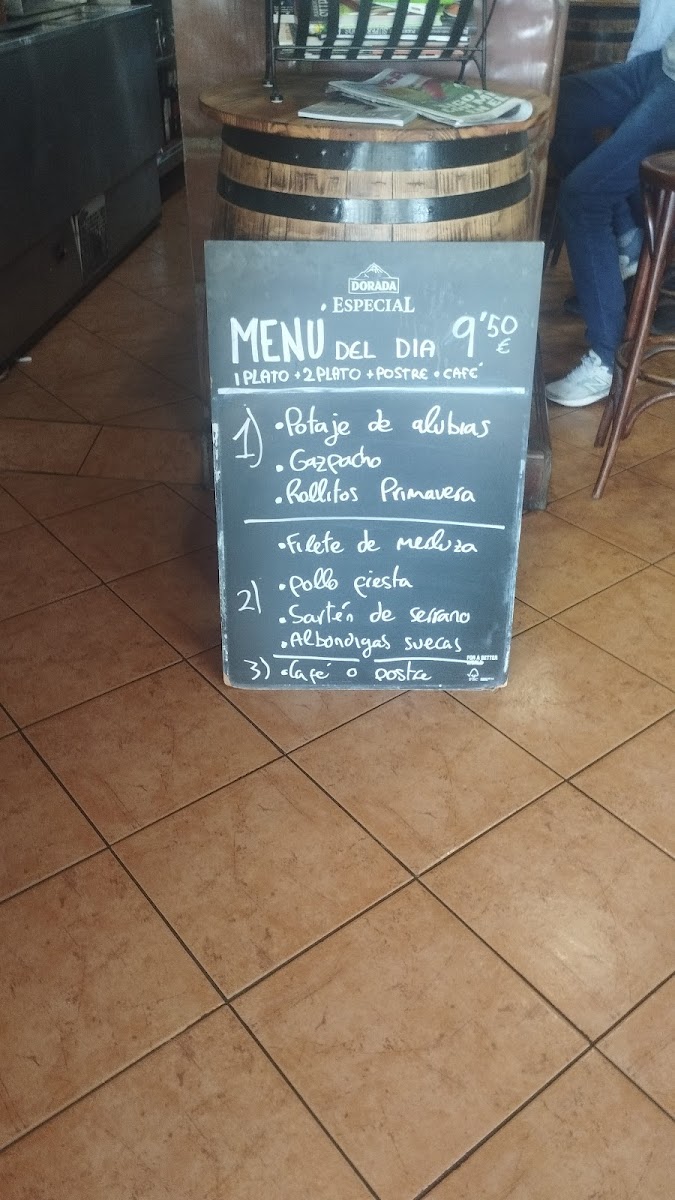 DORADA
ESPECIAL
MENÚ DEL DIA 9'50 €
1 PLATO + 2 PLATO + POSTRE o CAFÉ
1) • Potaje de alubias
• Gazpacho
• Rollitos Primavera
• Filete de merluza
2) • pollo fiesta
• Sartén de serrano
• Albondigas suecas
3) • Café o postre
FOR A BETTER
WORLD
FSC